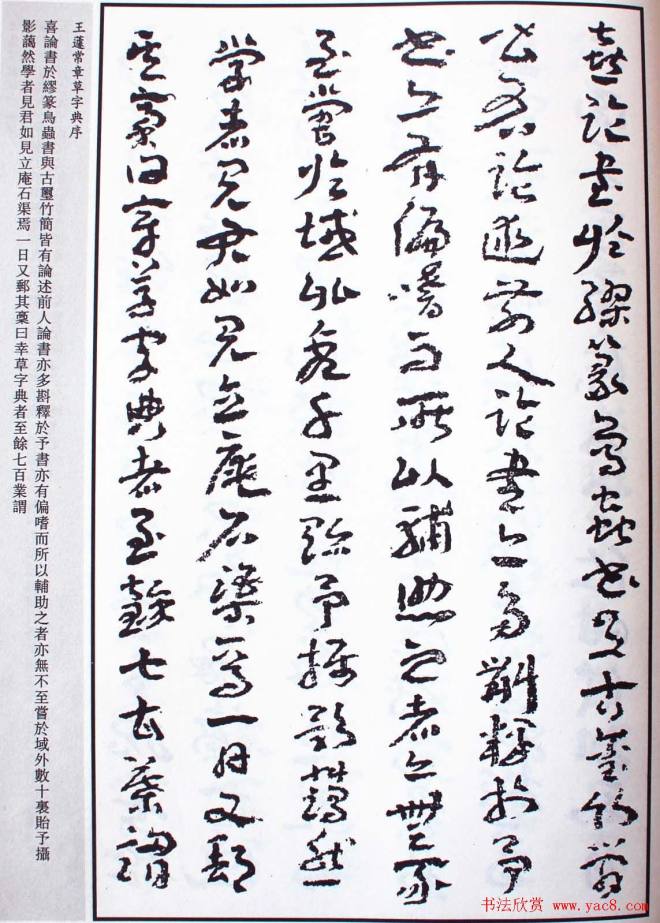 喜論書於繆篆鳥蟲書與古璽竹簡
皆有論述前人論書亦多斠釋於予
書亦有偏嗜而所以輔助之者亦無不
至嘗於域外數千里貽予攝影藹然
學者見君如見立庵石渠焉一日又郵
其稾曰章草字典者至餘七百葉謂
王蘧常章草字典序
喜論書於繆篆鳥蟲書與古璽竹簡皆有論述前人論書亦多斠釋於予書亦有偏嗜而所以輔助之者亦無不至嘗於域外數十裏貽予攝
影藹然學者見君如見立庵石渠焉一日又郵其稾曰幸草字典者至餘七百業謂
书法欣赏 www.yac8.com